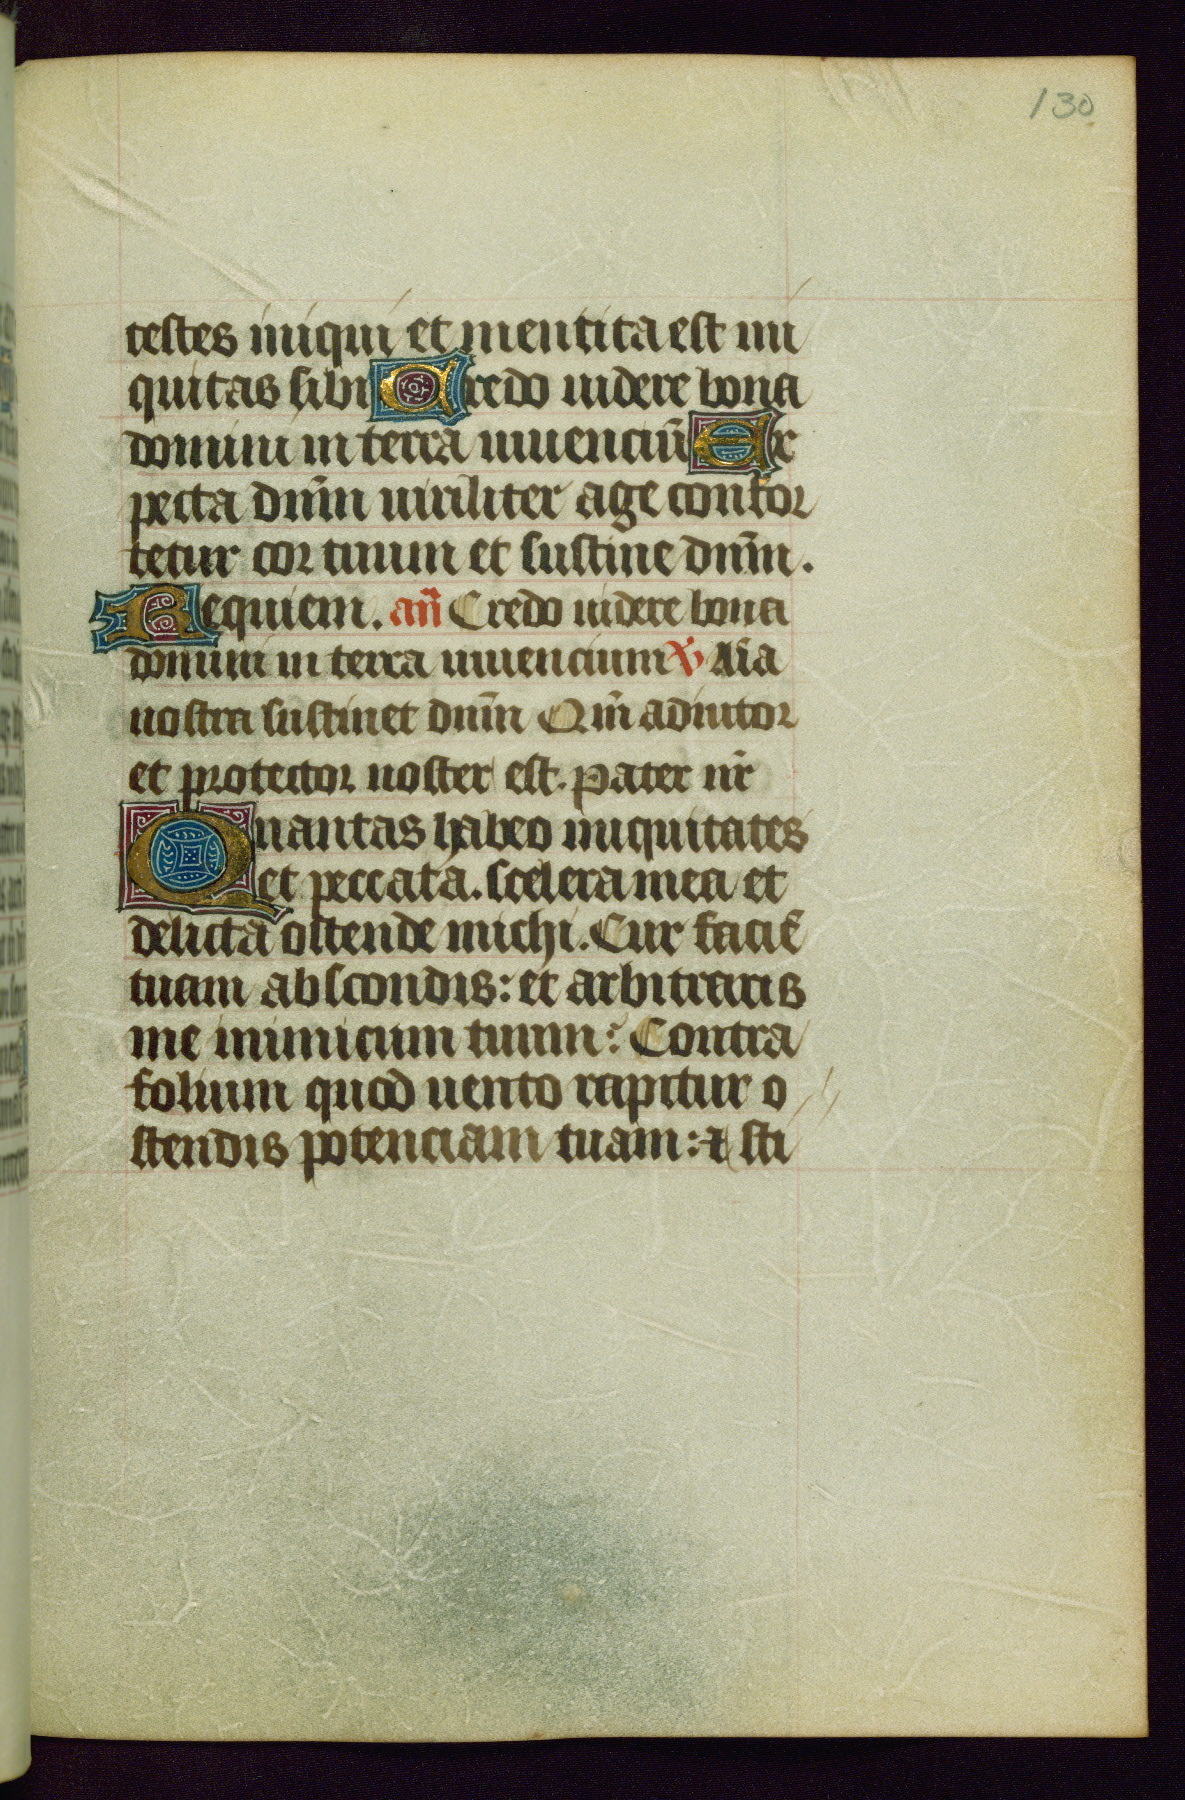 130
testes iniqui et mentita est ini
quitas sibi Credo uidere bona
domini in terra uiuenciū Ex
pecta dn̄m uiriliter age confor
tetur cor tuum et sustine dn̄m.
Requiem. an̄ Credo uidere bona
domini in terra uiuencium ℣ Aīa
nostra sustinet dn̄m Qm̄ adiutor
et protector noster est. Pater nr̄
Quantas habeo iniquitates
et peccata. scelera mea et
delicta ostende michi. Cur faciē
tuam abscondis: et arbitraris
me inimicum tuum: Contra
folium quod uento rapitur o
stendis potenciam tuam: ⁊ sti